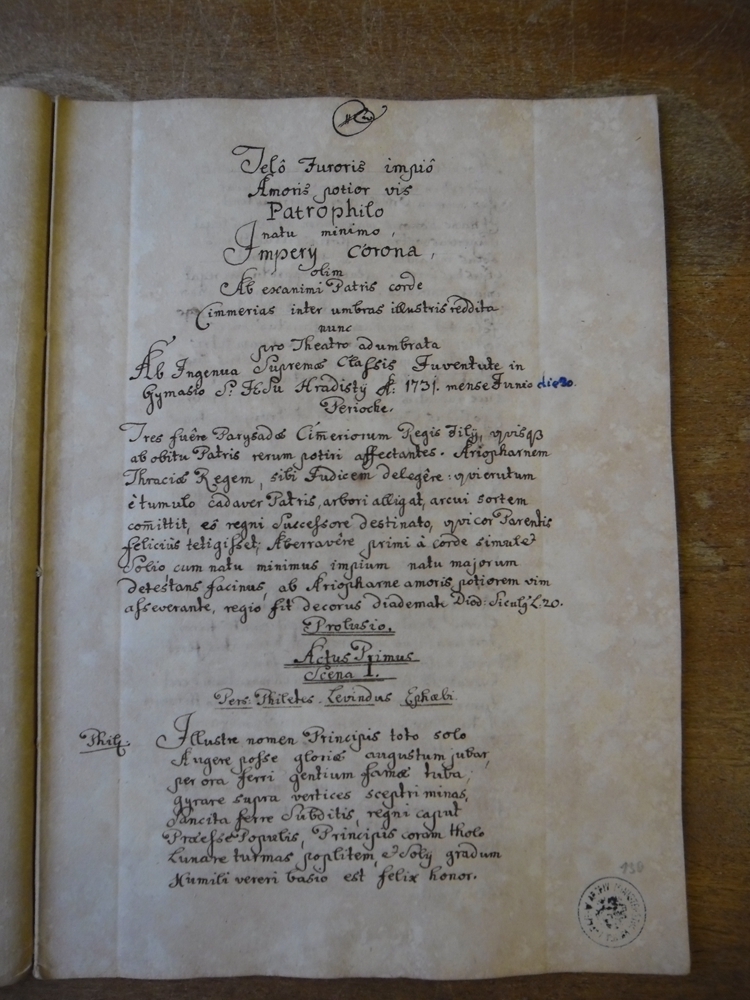 Telô Furoris impiô
Amoris potior vis
Patrophilo
natu minimo,
Imperÿ corona,
olim
Ab exanimi Patris corde
Cimmerias inter umbras illustris reddita
nunc
pro Theatro adumbrata
Ab Ingenua Supremæ Classis Juventute in
Gymasio S: J. Hradistÿ A: 1731. mense Junio die 20.
Periocke.
Tres fuêre Parysadæ Cim̃eriorum Regis Filÿ, qvisqß
ab obitu Patris rerum potiri affectantes. Ariopharnem
Thraciæ Regem, sibi Judicem delegêre: qvi erutum
è tumulo cadaver Patris, arbori alligat, arcui sortem
com̃ittit, es regni Successore destinato, qvi cor Parentis
feliciùs tetigisset; Aberravêre primi à corde simul et
Solio cum natu minimus impium natu majorum
detestans facinus, ab Ariopharne amoris potiorem vim
asseverante, regio fit decorus diademate Diod: Siculÿ L. 20.
Prolusio.
Actus Primus
Scena I.
Pers: Philetes. Levindus Ephæbi.
Phil:
Illustre nomen Principis toto solo
Augere posse gloriæ augustum jubar,
per ora ferri gentium famæ tuba,
gyrare supra vertices sceptri minas,
Sancita ferre Subditis, regni caput
Præesse Populis, Principis coram tholo
Lunare turmas poplitem, et Solÿ gradum
Humili vereri basio est felix honor.
136